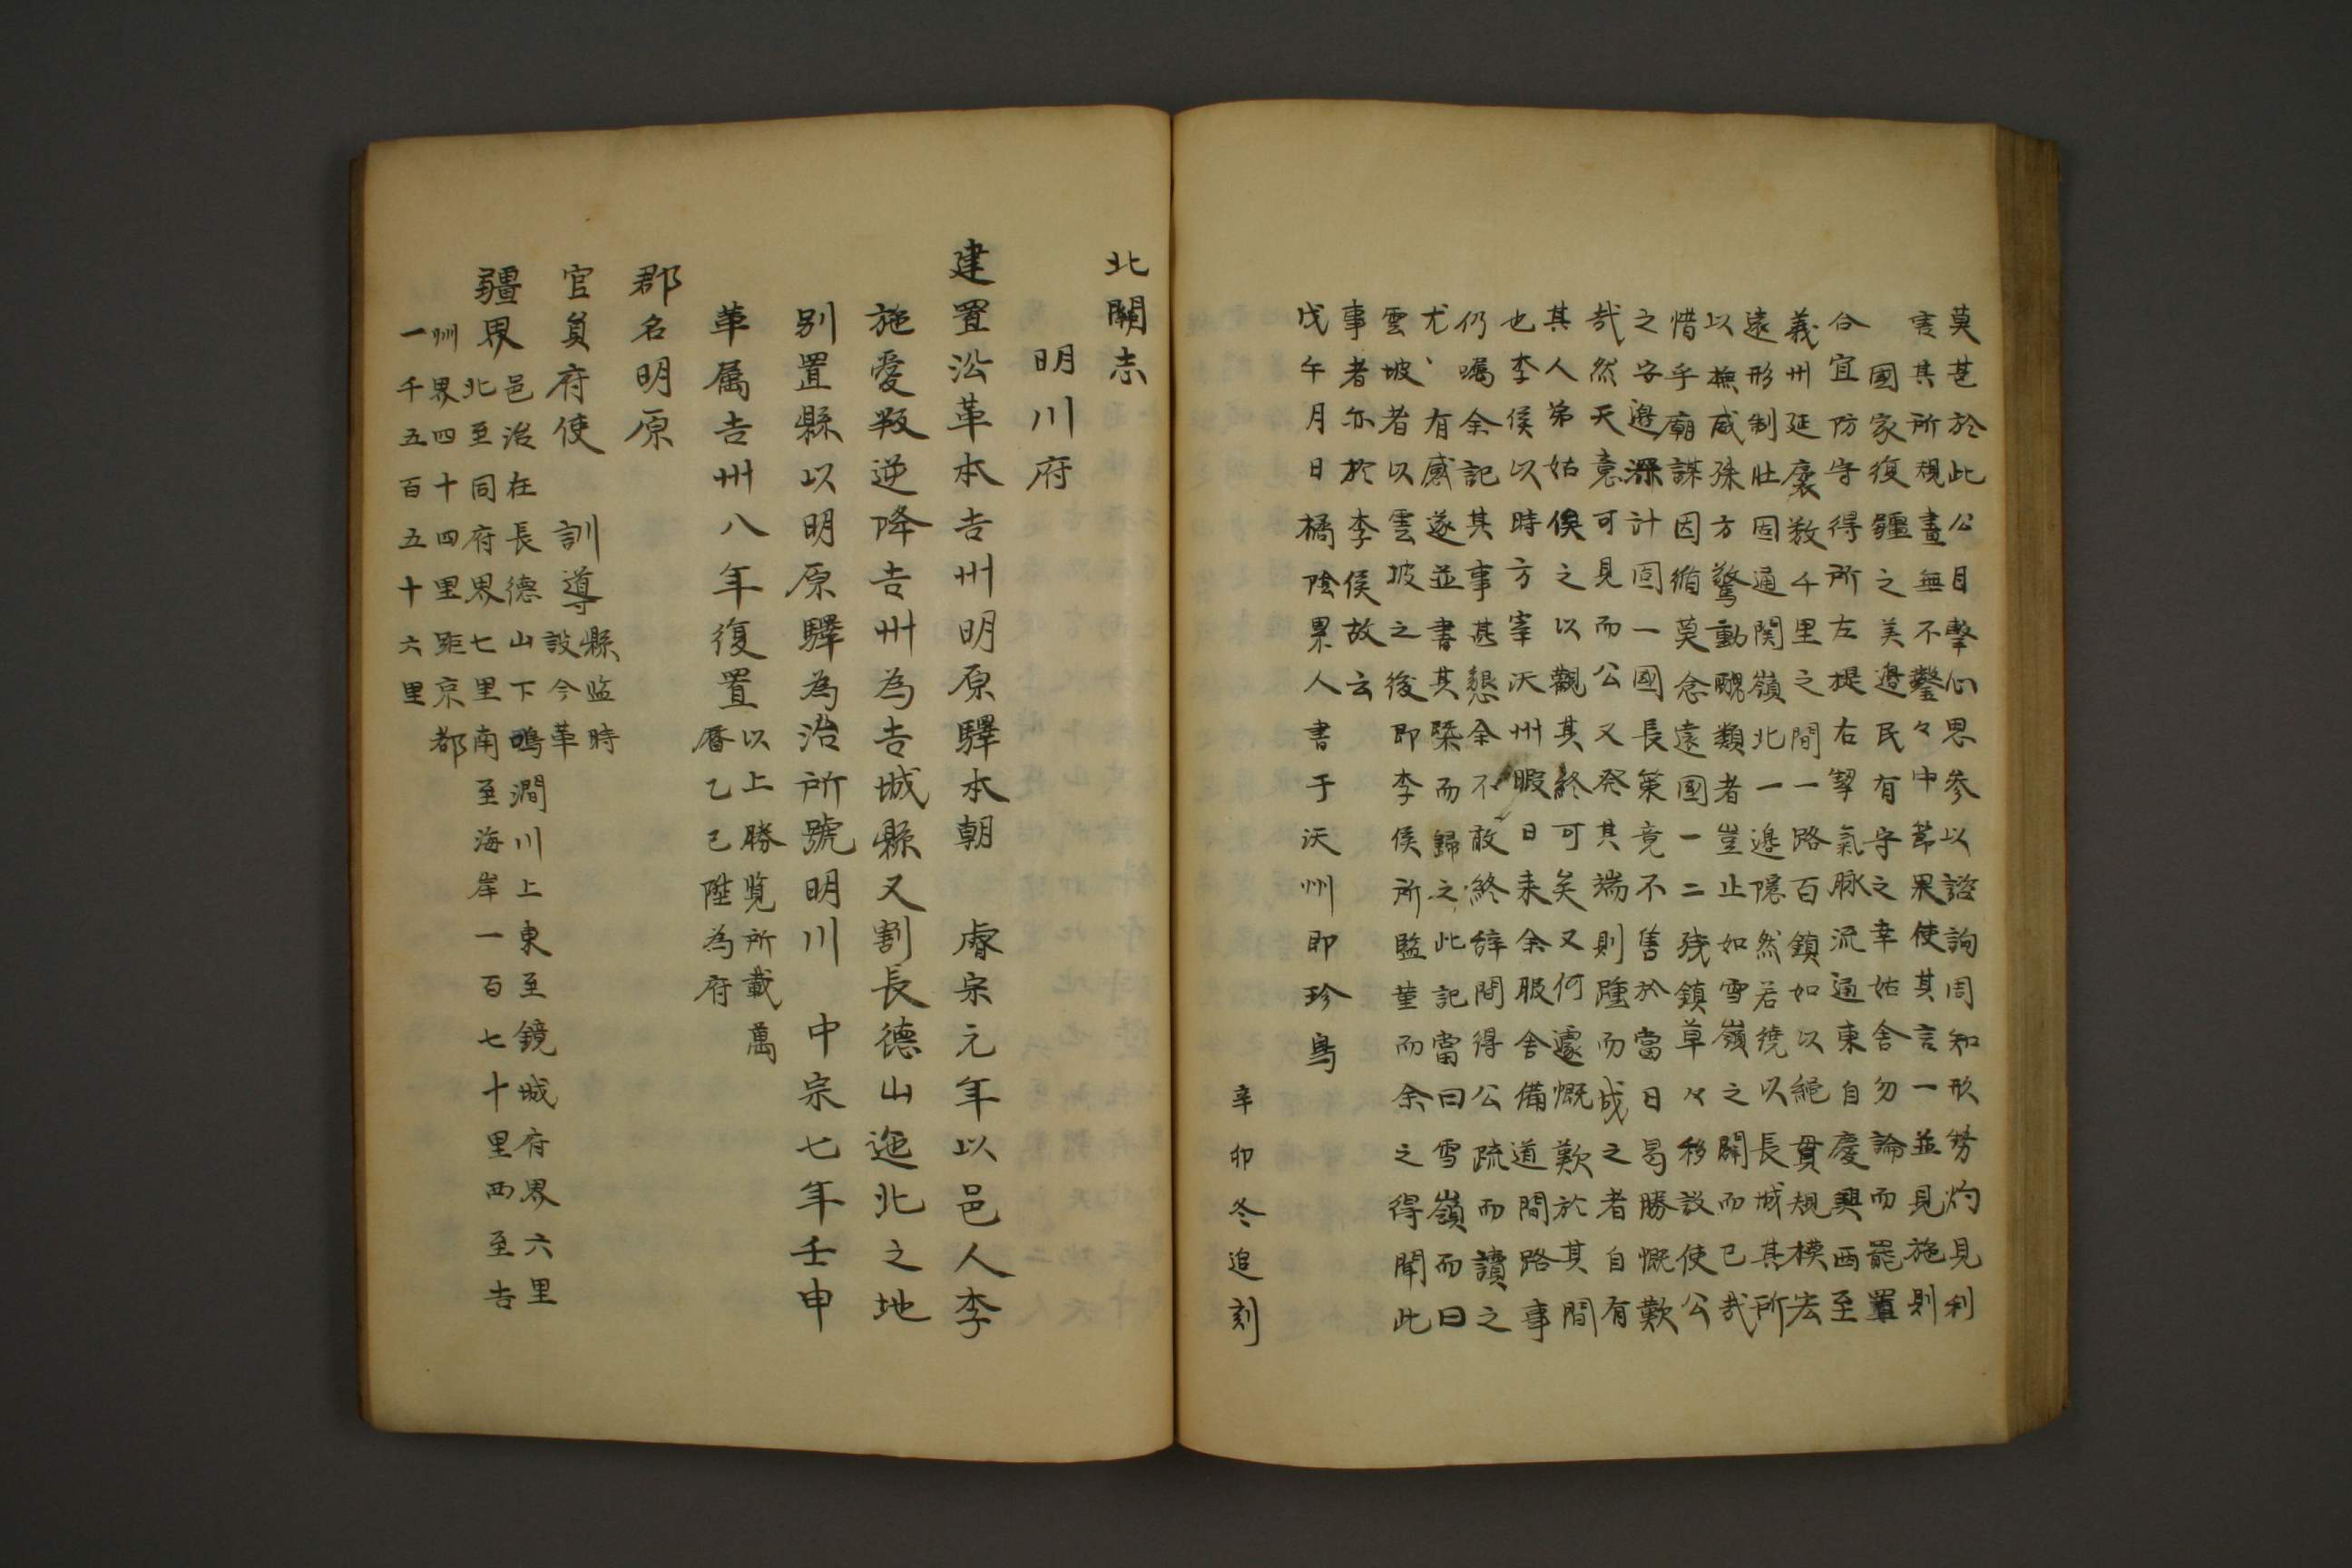 莫甚於此公目擊心思參以諮詢周知形勢灼見利
害其所規畫無不鑿々中節果使其言一並見施則
國家復疆之美邊民有守之幸姑舍勿論而罷置
合宜防守得所左提右挈氣脉流通東自慶興西至
義州延袤數千里之間一路百鎮如以絕貫規模宏
遠形制壯固通関嶺北一邊隱然若繞以長城其所
以撫威殊方驚動醜類者豈止如雪嶺之關而已哉
惜乎廟謀因循莫念遠國一二殘鎮草々移設使公
之安邊深計固一國長策竟不售於當日曷勝慨歎
哉然天意可見而公又發其端則踵而成之者自有
其人弟姑俟之以觀其終可矣又何遽慨歎於其間
也李侯以時方宰沃州暇日来余服舍備道間路事
仍囑余記其事甚懇余不敢終辞間得公疏而讀之
尤丶有感遂並書其槩而歸之此記當曰雪嶺而曰
雲坡者以雲坡之後即李侯所監董而余之得聞此
事者亦於李侯故云
戊午月日橘陰累人書于沃州即珍島
辛卯冬追刻
北關志
明川府
建置沿革本吉州明原驛本朝 睿宗元年以邑人李
施愛叛逆降吉州為吉城縣又割長德山迤北之地
別置縣以明原驛為治所號明川 中宗七年壬申
革属吉州八年復置以上勝覧所載萬
曆乙巳陞為府
郡名明原
官員府使 訓導縣监時
設今革
疆界邑治在長德山下鳴澗川上東至鏡城府界六里
北至同府界七里南至海岸一百七十里西至吉
州界四十四里距京都
一千五百五十六里